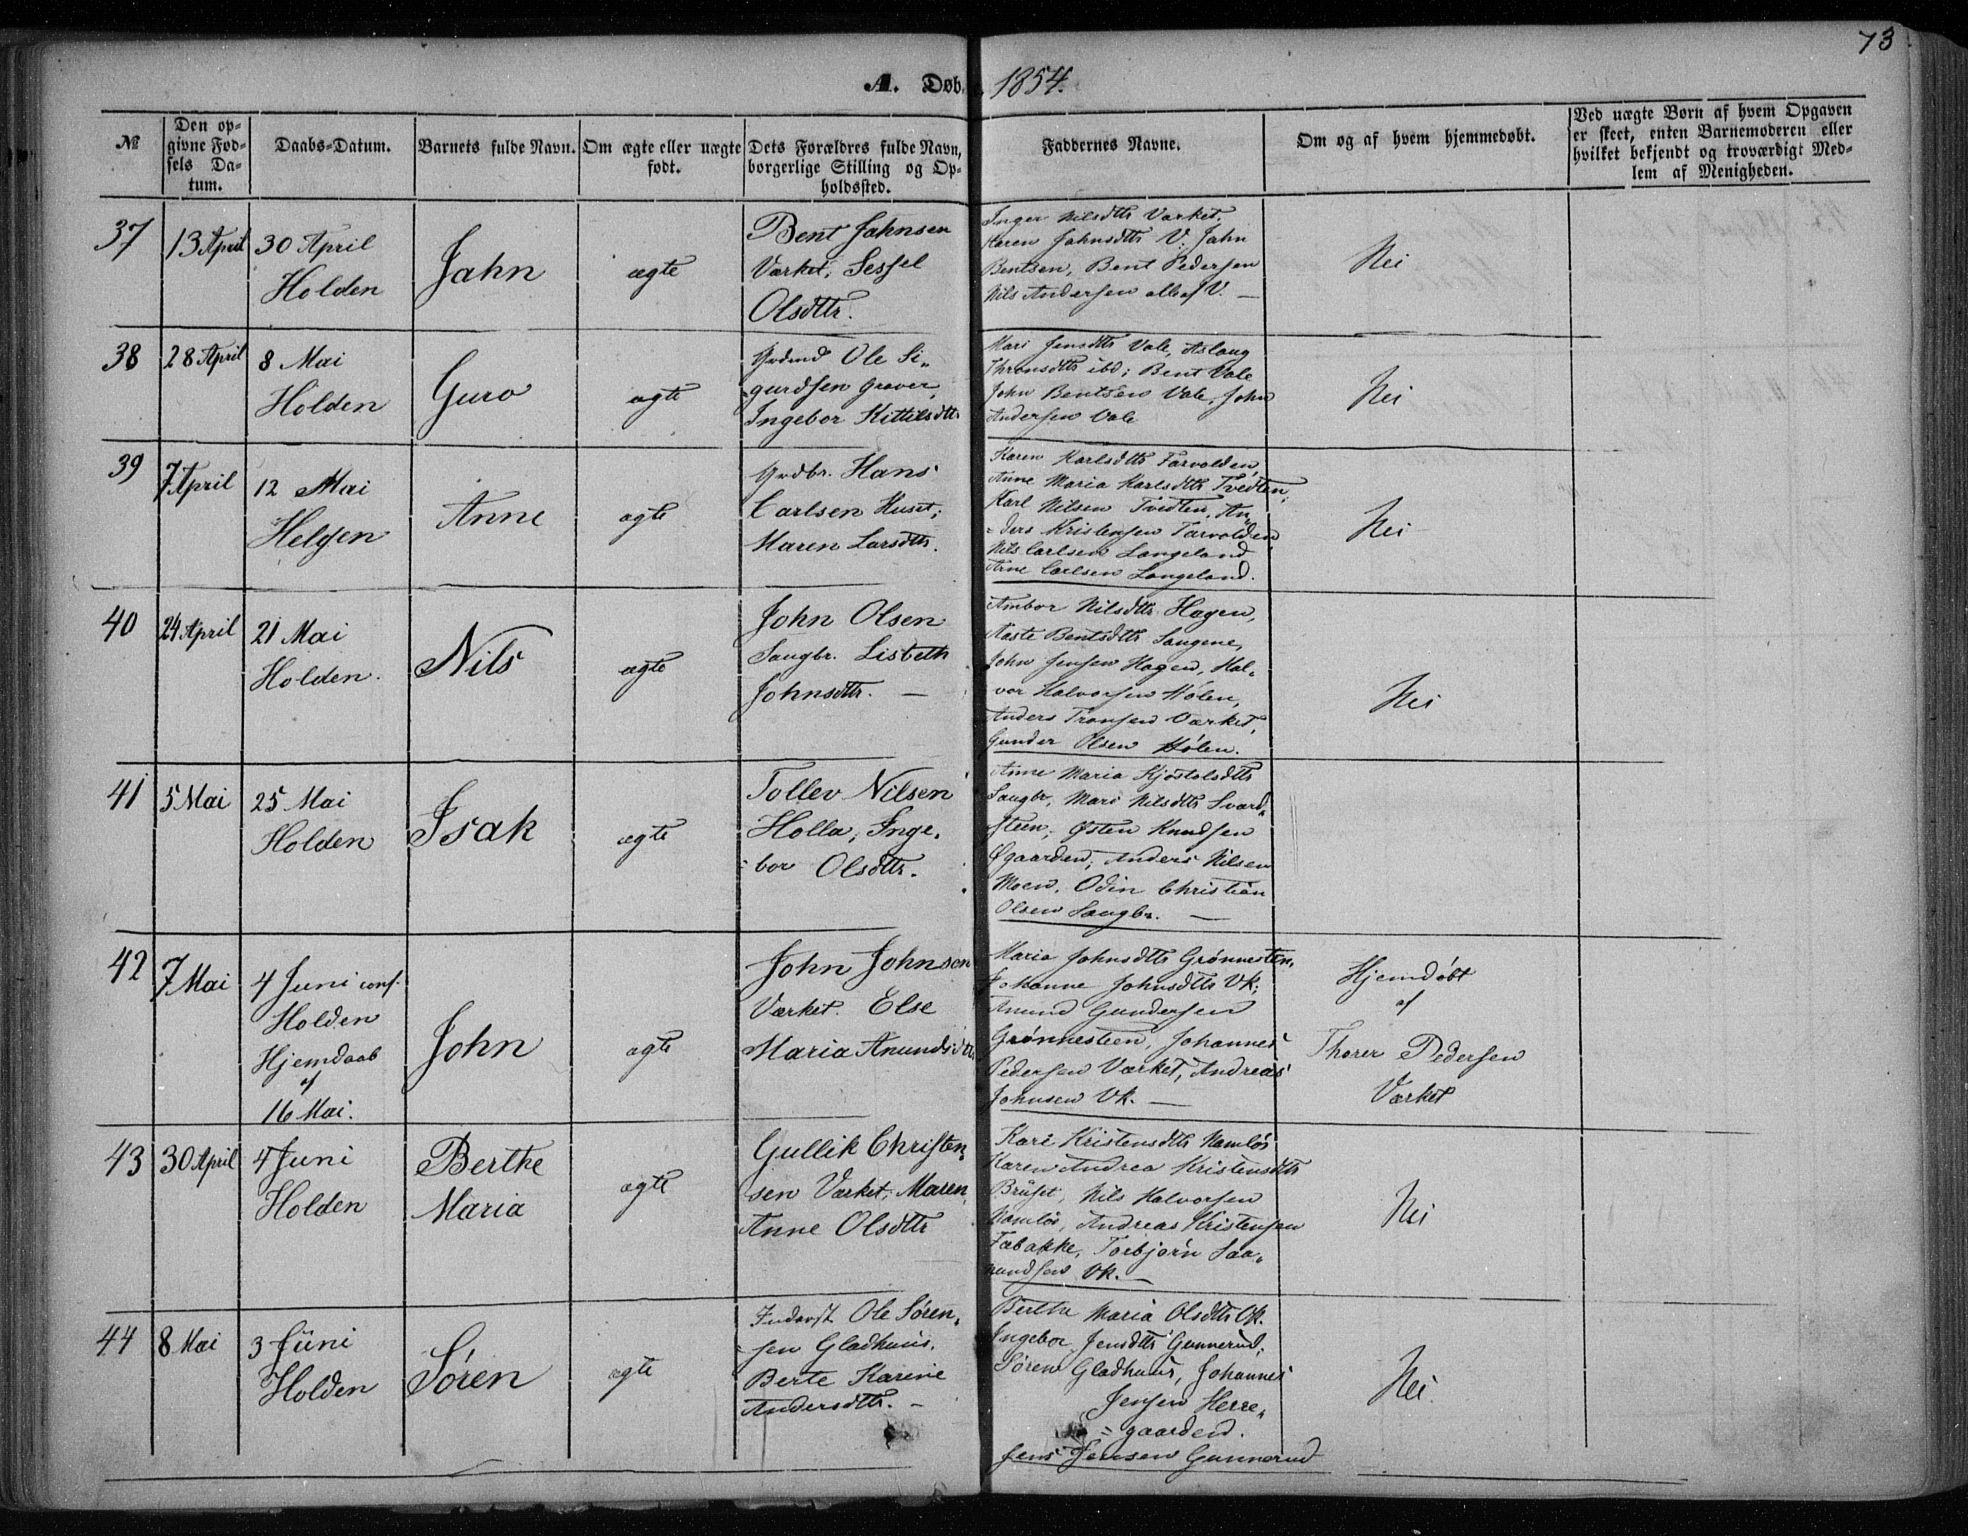 73
A. Døb. 1854.
№
Den opgivne Fødsels Datum.
Daabs-Datum.
Barnets fulde Navn.
Om ægte eller uægte født.
Dets Forældres fulde Navn, borgerlige Stilling og Opholdssted.
Faddernes Navne.
Om og af hvem hjemmedøbt.
Ved uægte Børn af hvem Opgaven er skeet, enten Barnemoderen eller hvilket bekjendt og troværdigt Medlem af Menigheden.
37
13 April
30 April
Holden
Jahn
ægte
Bent Jahnsen
Værket, Sessel
Olsdttr.
Inger Nilsdttr Værket,
Karen Jahnsdttr V. Jahn
Bentsen, Bent Pedersen
Nils Andersen alle af V. —
Nei
38
28 April
8 Mai
Holden
Guro
ægte
Grdmd Ole Si„
gurdsen Graver,
Ingebor Kittilsdttr
Mari Jensdttr Vale, Aslaug
Thronsdttr ibd; Bent Vale
John Bentsen Vale, John
Andersen Vale
Nei
39
7 April
12 Mai
Helgen
Anne
ægte
Grdbr. Hans
Carlsen Huset;
Maren Larsdttr.
Karen Karlsdttr Tarvolden,
Anne Maria Karlsdttr Tvedten;
Karl Nilsen Tvedten, An„
ders Kristensen Tarvolden,
Nils Carlsen Langeland
Arne Carlsen Langeland.
Nei
40
24 April
21 Mai
Holden.
Nils
ægte
John Olsen
Saugbr. Lisbeth
Johnsdttr. —
Ambor Nilsdttr Hagen,
Aaste Bentsdttr Saugene,
John Jensen Hagen, Hal„
vor Halvorsen Hølen,
Anders Tronsen Værket,
Gunder Olsen Hølen.
Nei
41
5 Mai
25 Mai
Holden
Isak
ægte
Tollev Nilsen
Holla, Inge„
bor Olsdttr.
Anne Maria Kjøstolsdttr
Saugbr, Mari Nilsdttr Svard„
steen; Østen Knudsen
Øgaarden; Anders Nilsen
Moen. Odin Christian
Olsen Saugbr. —
42
7 Mai
4 Juni conf.
Holden
Hjemdaab
af
16 Mai.
John
ægte
John Johnsen
Værket. Else
Maria Anundsdttr
Maria Johnsdttr Grønnesteen,
Johanne Johnsdttr Vk;
Anund Gundersen
Grønnesteen, Johannes
Pedersen Værket, Andreas
Johnsen Vk. —
Hjemdøbt
af
Thorer Pedersen
Værket
43
30 April
4 Juni
Holden
Berthe
Maria
ægte
Gullik Christen„
sen Værket, Maren
Anne Olsdttr
Kari Kristensdttr Namløs
Karen Andrea Kristensdttr
Bruset, Nils Halvorsen
Namløs, Andreas Kristensen
Fæbakke, Torbjørn Saa„
mundsen Vk. —
Nei
44
8 Mai
3 Juni
Holden
Søren
ægte
Inderst Ole Søren„
sen Gladhuus,
Berte Karine
Andersdttr. —
Berthe Maria Olsdttr Vk.
Ingebor Jensdttr Gunnerud;
Søren Gladhuus, Johannes
Jensen Herre„
gaarden.
Jens Jensen Gunnerud
Nei.